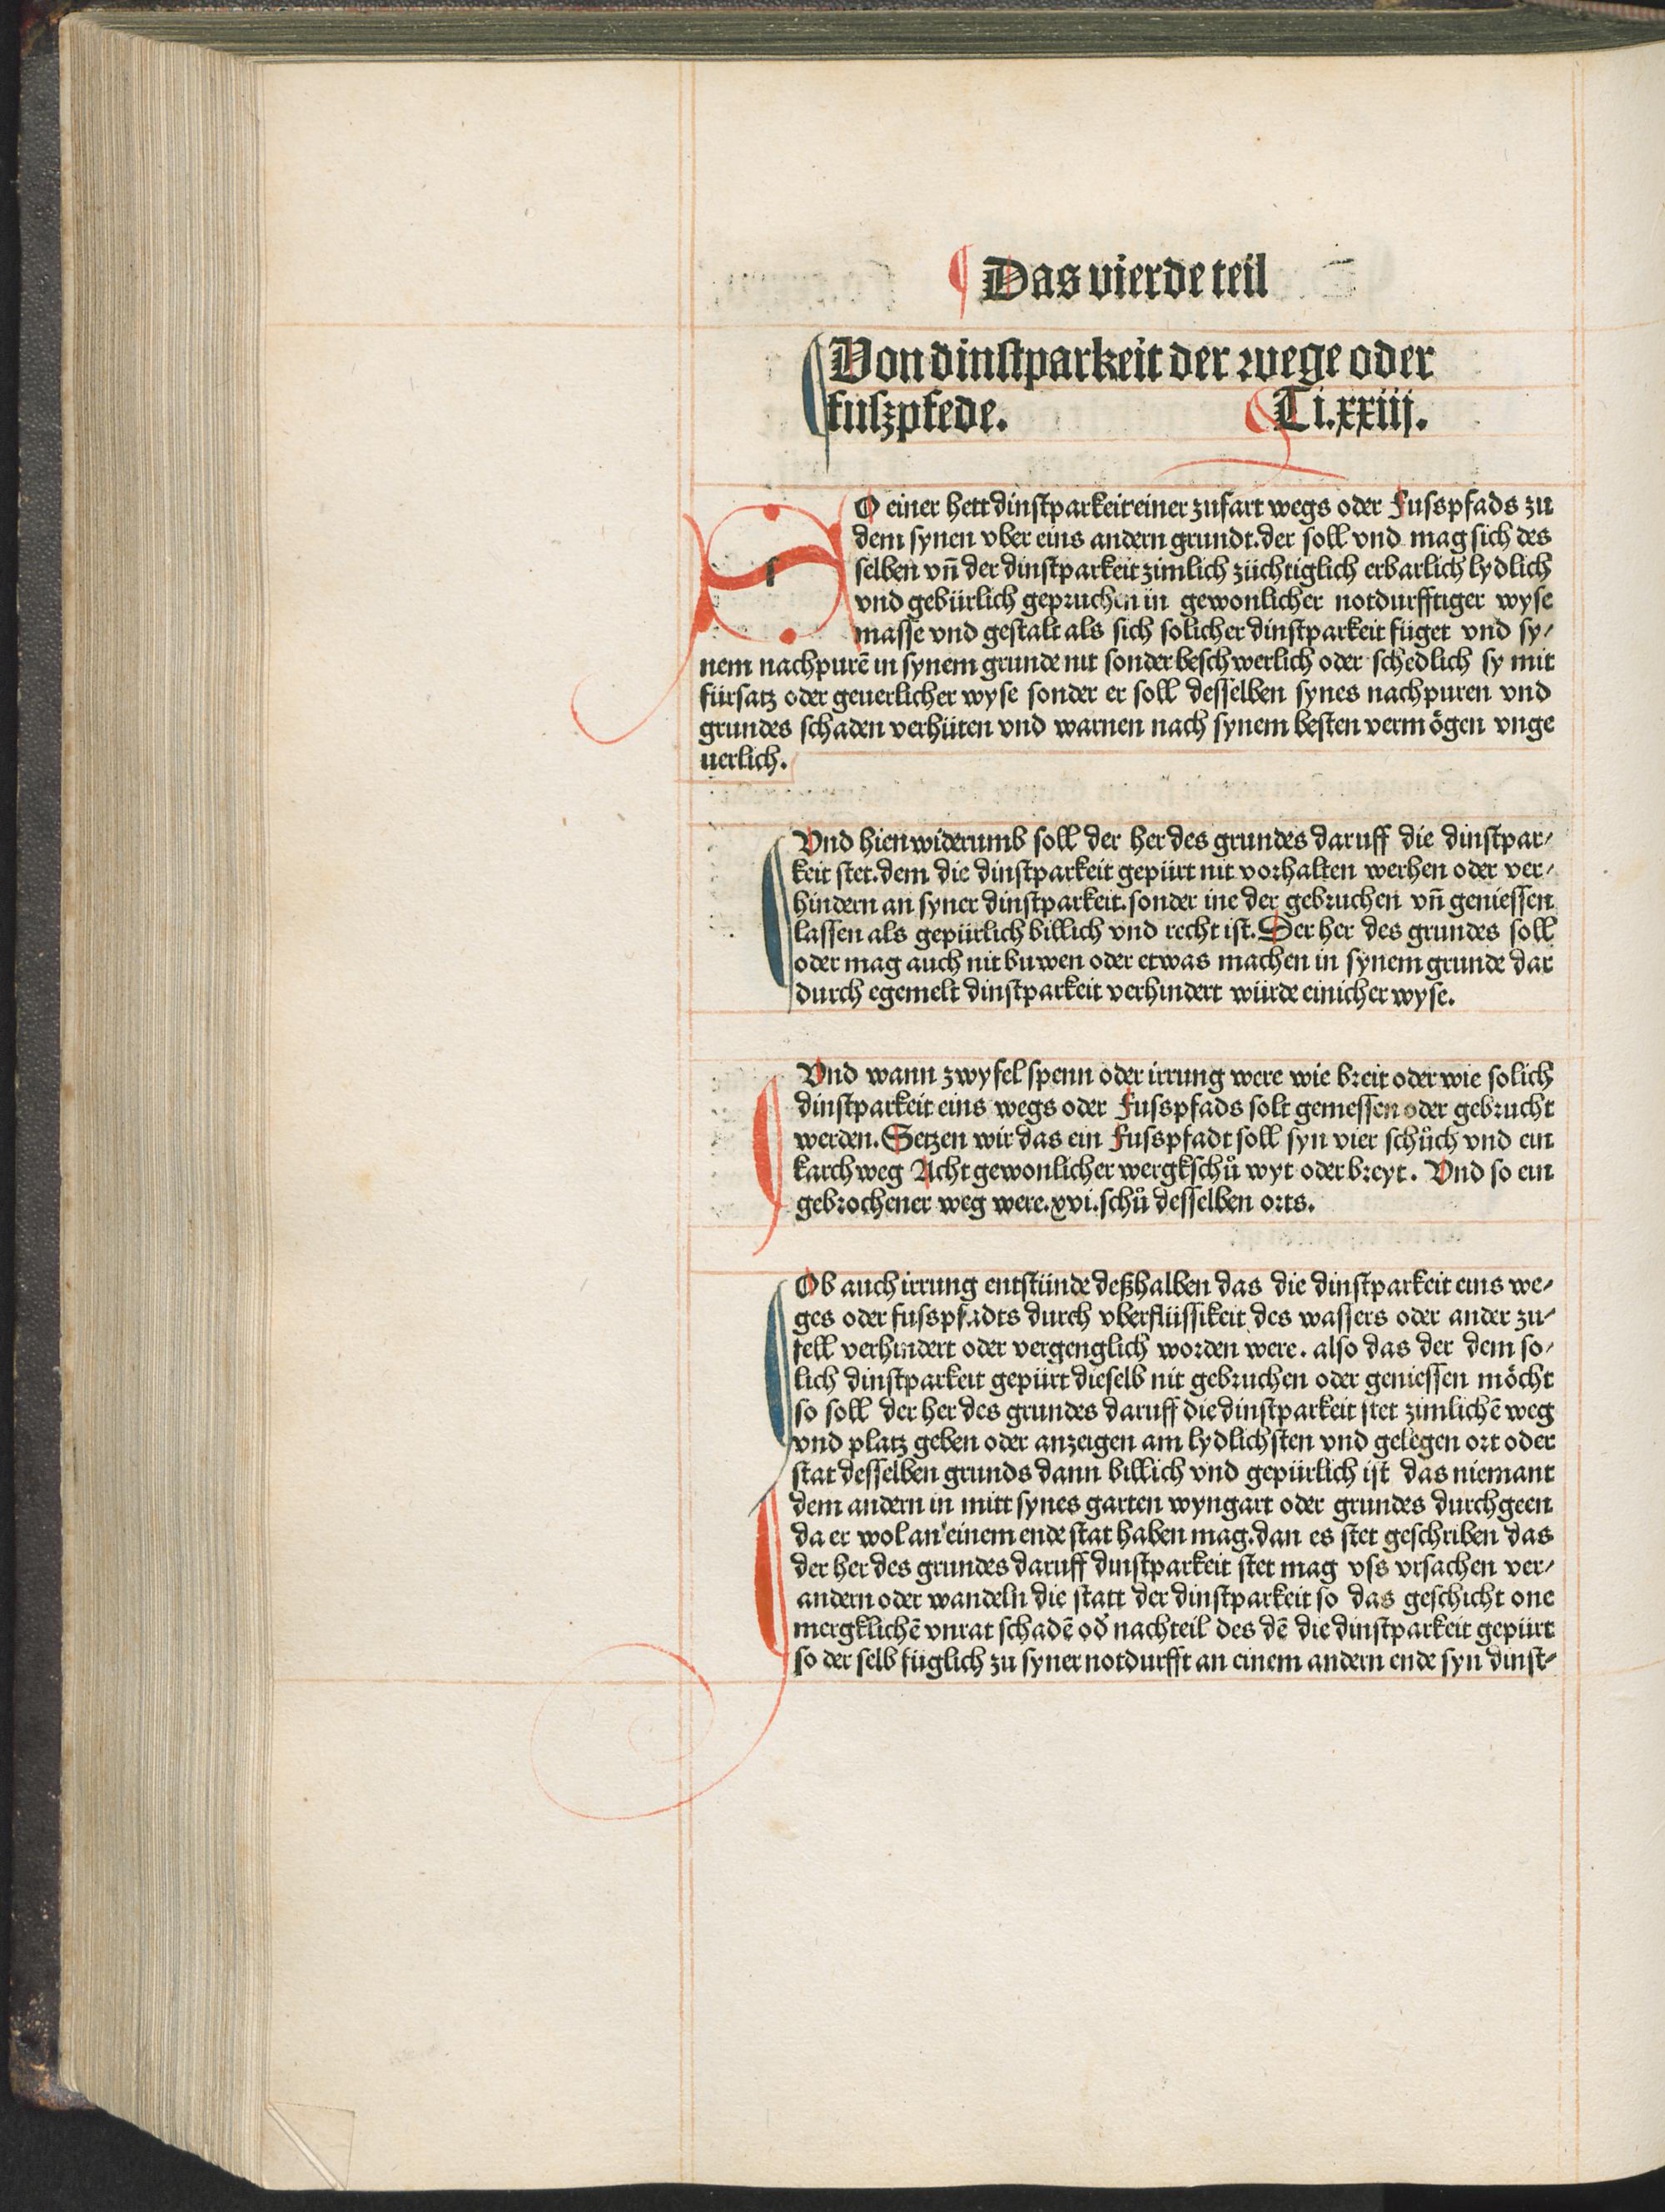 Das vierde teil
Von dinstparkeit der wege oder
fuszpfede. Ti.xxiij.
SO einer hett dinstparkeit einer zufart wegs oder Fusspfads zu
dem synen vber eins andern grundt. der soll vnd mag sich des
selben vn̄ der dinstparkeit zimlich züchtiglich erbarlich lydlich
vnd gebürlich gepruchen in gewonlicher notdurfftiger wyse
masse vnd gestalt als sich solicher dinstparkeit füget vnd sy/
nem nachpurē in synem grunde nit sonder beschwerlich oder schedlich sy mit
fürsatz oder geuerlicher wyse sonder er soll desselben synes nachpuren vnd
grundes schaden verhüten vnd warnen nach synem besten vermögen vnge
uerlich.
Vnd hienwiderumb soll der her des grundes daruff die dinstpar/
keit stet. dem die dinstparkeit gepürt nit vorhalten werhen oder ver/
hindern an syner dinstparkeit. sonder ine der gebruchen vn̄ geniessen
lassen als gepürlich billich vnd recht ist. Der her des grundes soll
oder mag auch nit buwen oder etwas machen in synem grunde dar
durch egemelt dinstparkeit verhindert würde einicher wyse.
Vnd wann zwyfel spenn oder irrung were wie breit oder wie solich
dinstparkeit eins wegs oder Fusspfads solt gemessen oder gebrucht
werden. Setzen wir das ein Fusspfadt soll syn vier schůch vnd ein
karchweg Acht gewonlicher wergkschů wyt oder breyt. Vnd so ein
gebrochener weg were. xvi. schů desselben orts.
Ob auch irrung entstünde deßhalben das die dinstparkeit eins we/
ges oder fusspfadts durch vberflüssikeit des wassers oder ander zu/
fell verhindert oder vergenglich worden were. also das der dem so/
lich dinstparkeit gepürt dieselb nit gebruchen oder geniessen möcht
so soll der her des grundes daruff die dinstparkeit stet zimlichē weg
vnd platz geben oder anzeigen am lydlichsten vnd gelegen ort oder
stat desselben grunds dann billich vnd gepürlich ist das niemant
dem andern in mitt synes garten wyngart oder grundes durchgeen
da er wol an einem ende stat haben mag. dan es stet geschriben das
der her des grundes daruff dinstparkeit stet mag vss vrsachen ver/
andern oder wandeln die statt der dinstparkeit so das geschicht one
mergklichē vnrat schadē od̄ nachteil des dē die dinstparkeit gepürt
so der selb füglich zu syner notdurfft an einem andern ende syn dinst/